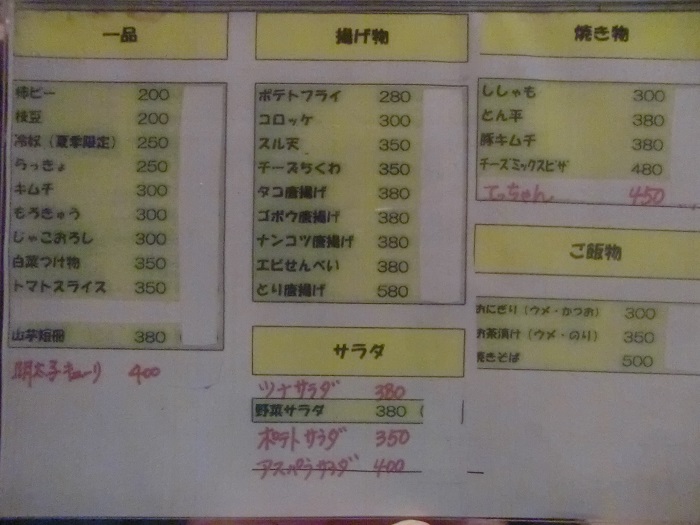 一品
柿ピー 200
枝豆 200
冷奴（夏季限定） 250
らっきょ 250
キムチ 300
もろきゅう 300
じゃこおろし 300
白菜つけ物 350
トマトスライス 350
山芋短冊 380
明太子キューリ 400
揚げ物
ポテトフライ 280
コロッケ 300
スル天 350
チーズちくわ 350
タコ唐揚げ 380
ゴボウ唐揚げ 380
ナンコツ唐揚げ 380
エビせんべい 380
とり唐揚げ 580
サラダ
ツナサラダ 380
野菜サラダ 380
ポテトサラダ 350
アスパラサラダ 400
焼き物
ししゃも 300
とん平 380
豚キムチ 380
チーズミックスピザ 480
てっちゃん 450
ご飯物
おにぎり（ウメ・かつお） 300
お茶漬け（ウメ・のり） 350
焼きそば 500